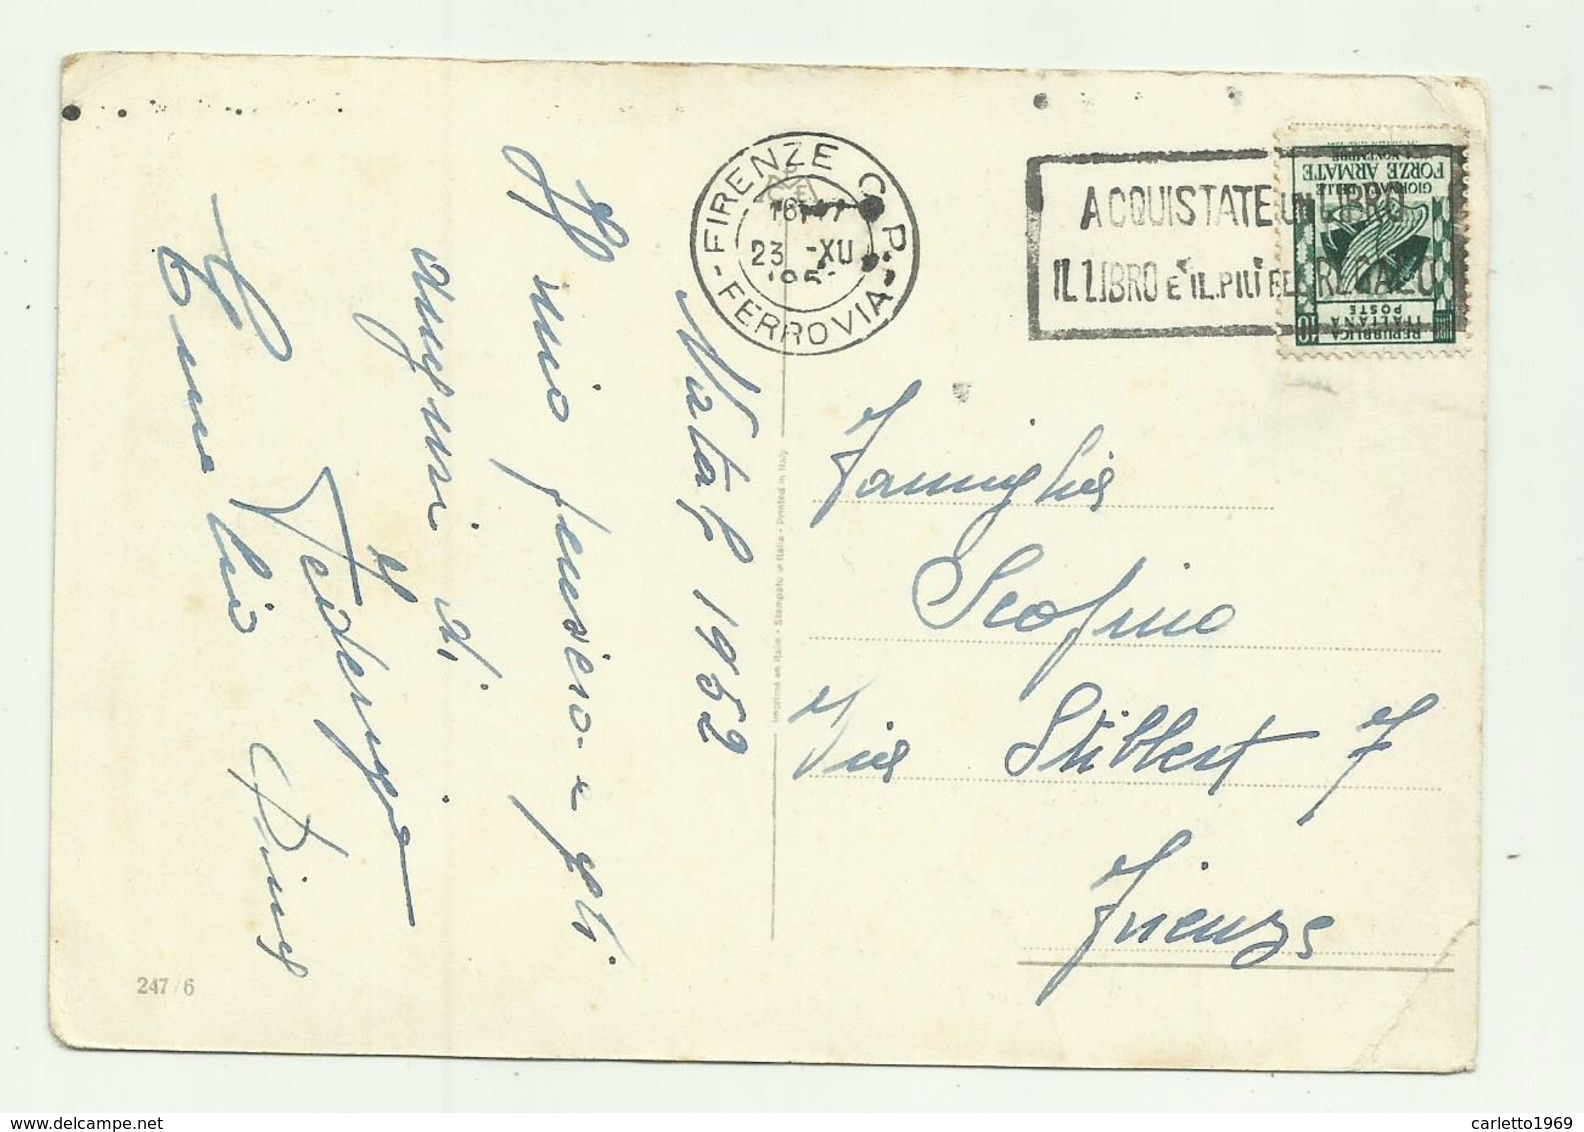 Natale 1952
Il mio pensiero e gli
auguri di
Federigo
e
zio
FIRENZE C.P.
16-17
23 -XII
- FERROVIA -
ACQUISTATE UN LIBRO
IL LIBRO È IL PIÙ BEL REGALO
GIORNATA DELLE
FORZE ARMATE
4 NOVEMBRE
10
REPUBBLICA
ITALIANA
POSTE
Famiglia
Scofino
Via Stibbert 7
Firenze
Imprimé en Italie - Stampato in Italia - Printed in Italy
247/6
carletto1969